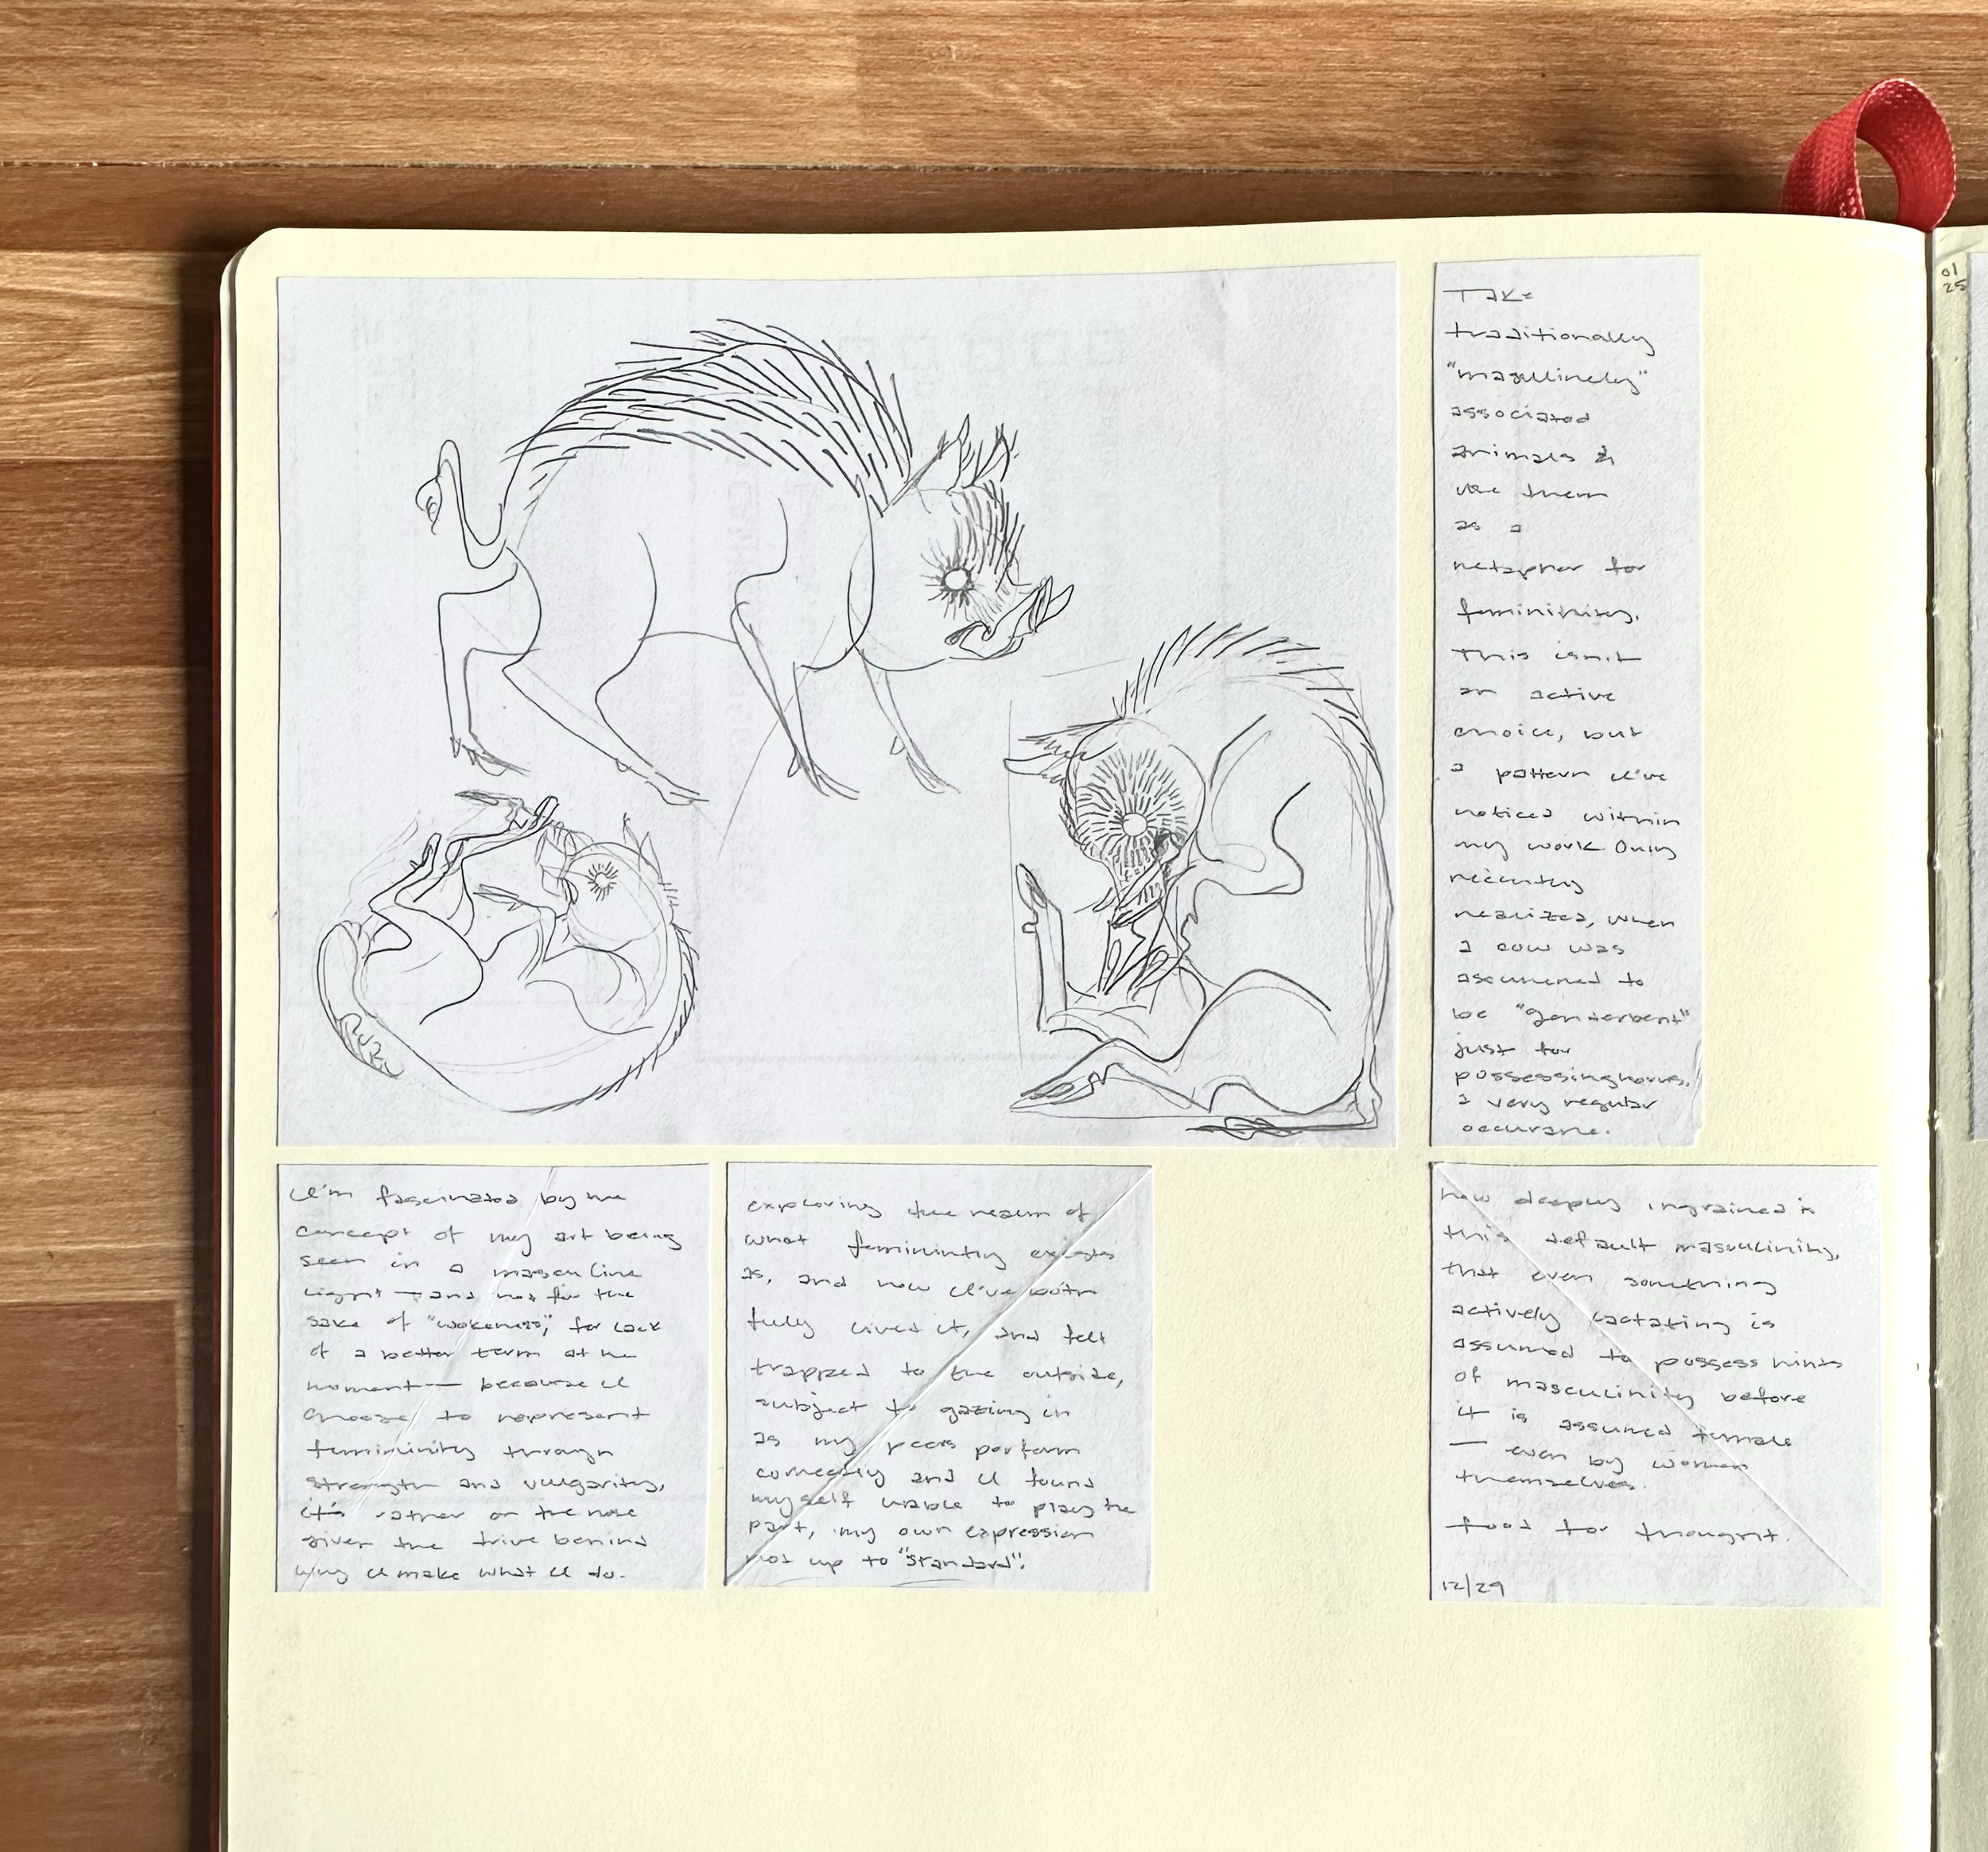 Take
traditionally
"masculinely"
associated
animals &
use them
as a
metaphor for
femininity.
This isn't
an active
choice, but
a pattern I've
noticed within
my work. Only
recently
realized, when
a cow was
assumened to
be "genterbent"
just for
possessing horns,
a very regular
occurane.
I'm fascinated by the
concept of my art being
seen in a masculine
light — and not for the
sake of "wokeness", for lack
of a better term at the
moment — because I
choose to represent
femininity through
strength and vulgarity,
it's rather on the nose
given the drive behind
why I make what I do.
exploring the realm of
what femininity exists
as, and how I've both
fully lived it, and felt
trapped to the outside,
subject to gazing in
as my peers perform
correctly and I found
myself unable to play the
part, my own expression
not up to "standard".
how deeply ingrained is
this default masculinity,
that even something
actively lactating is
assumed to possess hints
of masculinity before
it is assumed female
— even by women
themselves.
food for thought.
12/29
01
25